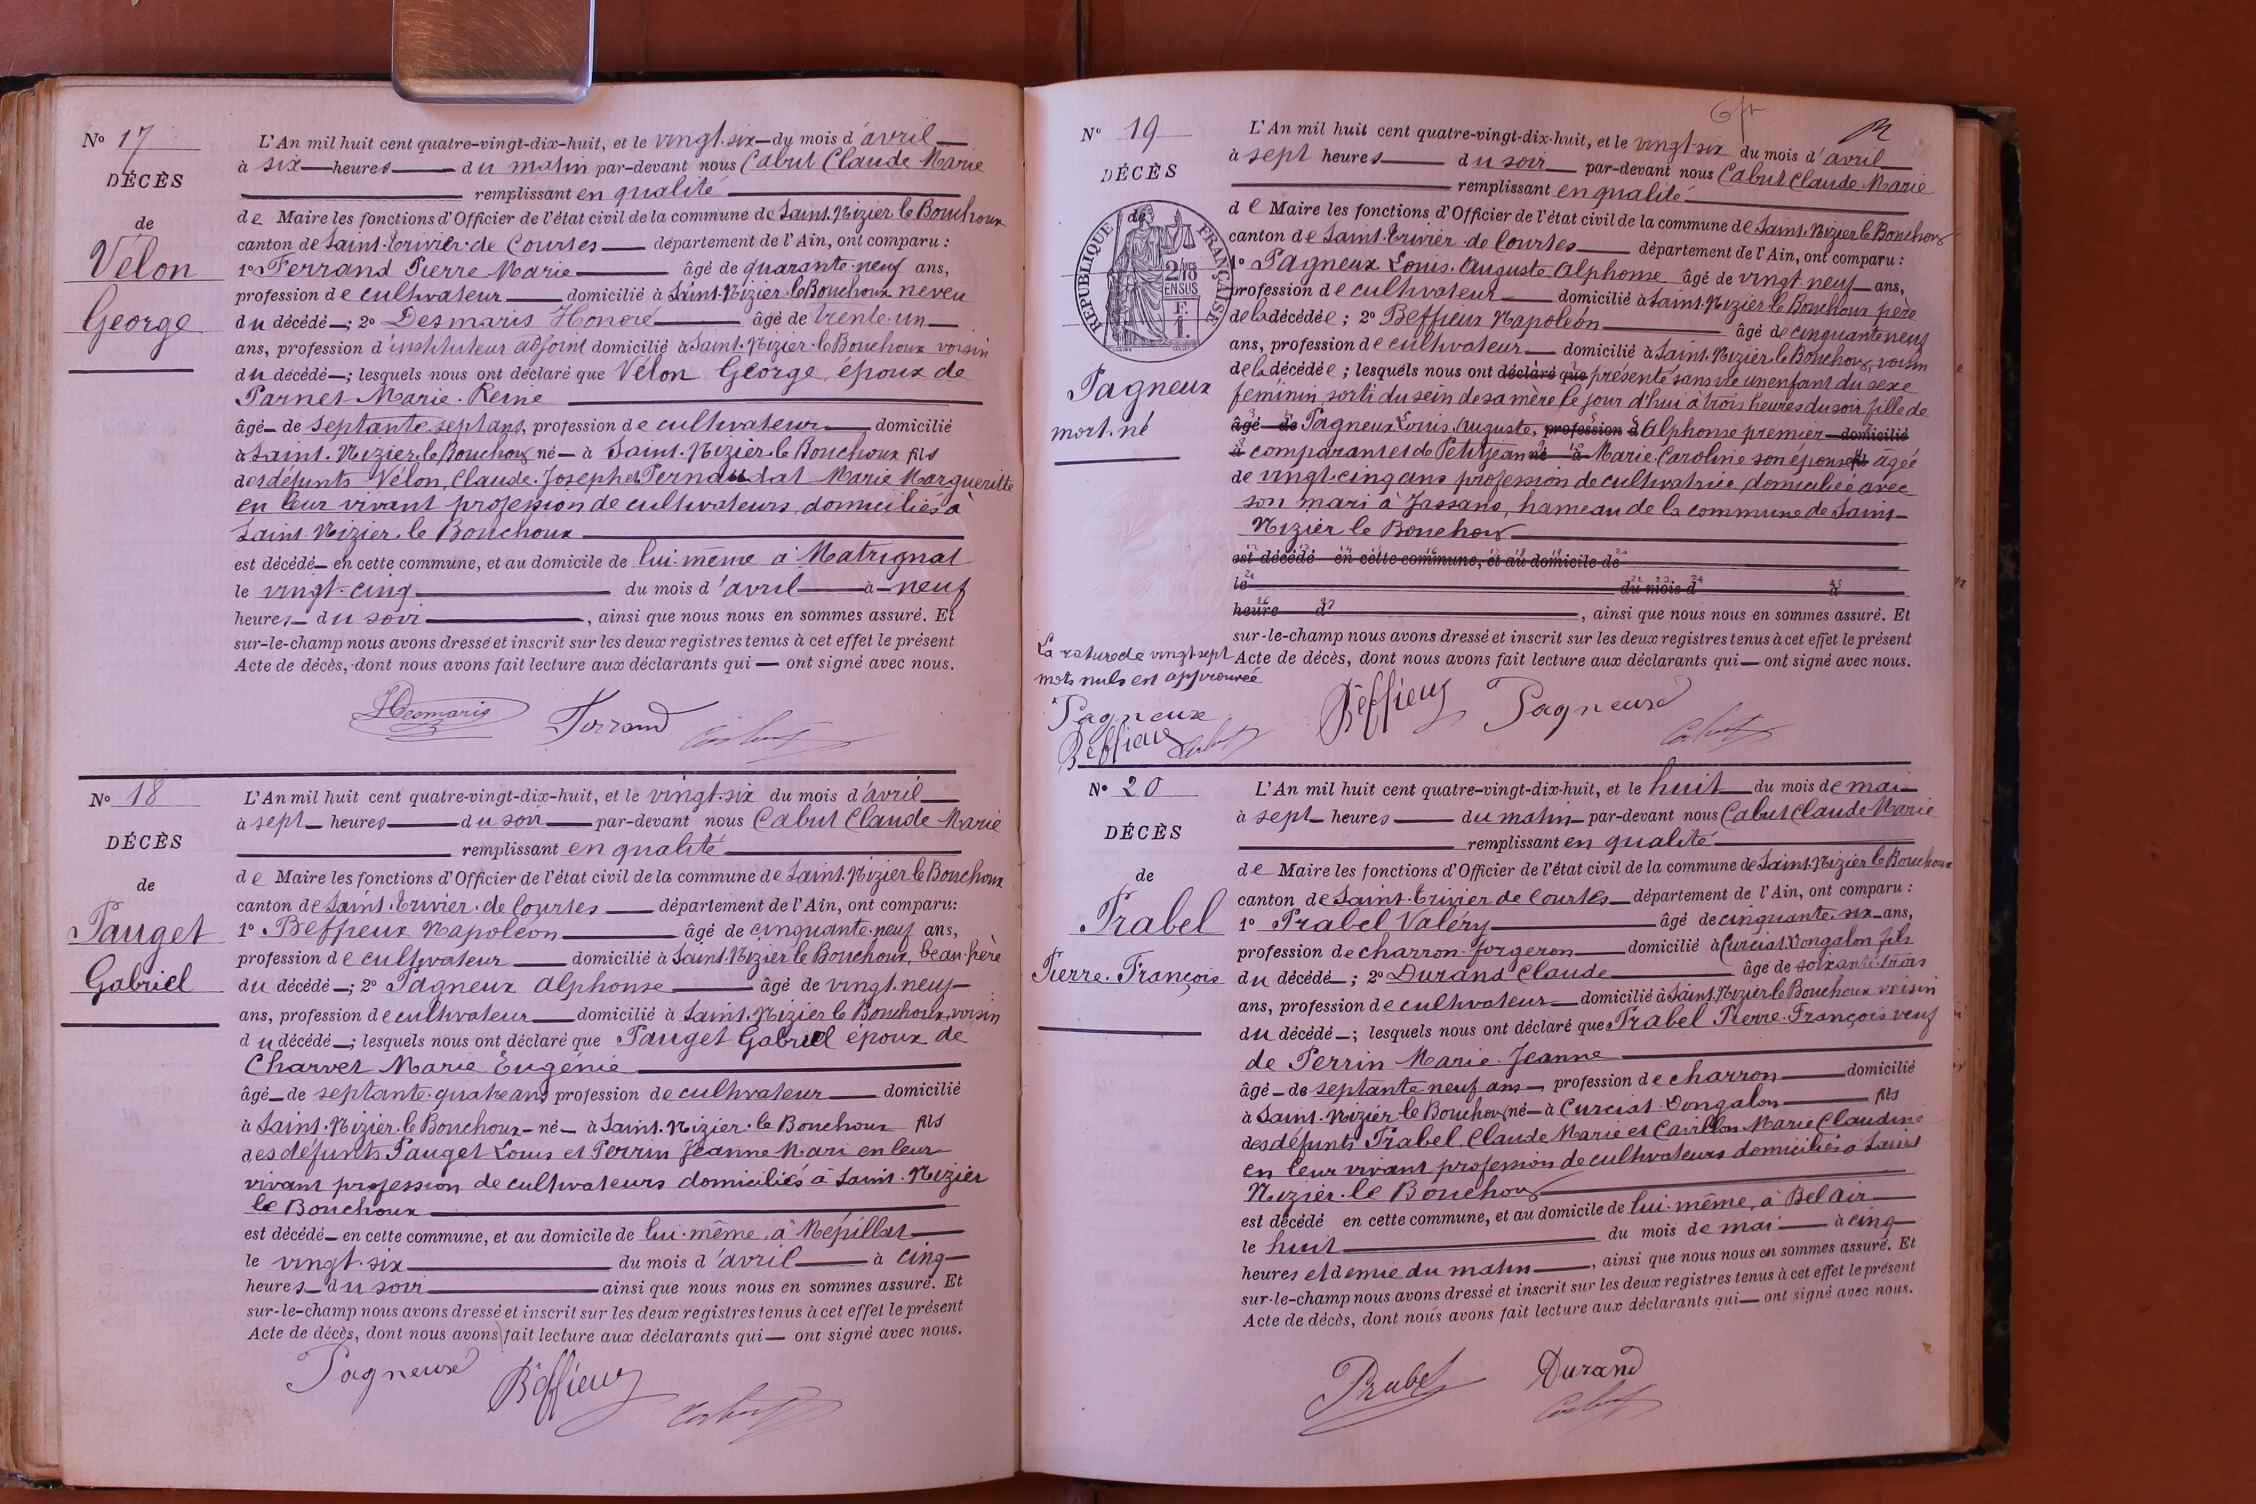 Nº 17
DÉCÈS
de
Vélon
George
L'An mil huit cent quatre-vingt-dix-huit, et le vingt-six du mois d'avril
à six heures du matin par-devant nous Cabut Claude Marie
remplissant en qualité
de Maire les fonctions d'Officier de l'état civil de la commune de Saint-Nizier le Bouchoux
canton de Saint-Trivier-de Courtes département de l'Ain, ont comparu :
1º Ferrand Pierre Marie âgé de quarante-neuf ans,
profession de cultivateur domicilié à Saint-Nizier-le Bouchoux neveu
du décédé ; 2º Desmaris Honoré âgé de trente-un
ans, profession d'instituteur adjoint domicilié à Saint-Nizier-le Bouchoux voisin
du décédé ; lesquels nous ont déclaré que Vélon George, époux de
Parnet Marie-Reine
âgé de septante-sept ans, profession de cultivateur domicilié
à Saint-Nizier-le Bouchoux né à Saint-Nizier-le Bouchoux fils
des défunts Vélon, Claude-Joseph et Pernaudat Marie Margueritte
en leur vivant profession de cultivateurs, domiciliés à
Saint-Nizier-le Bouchoux
est décédé en cette commune, et au domicile de lui-même à Matrignat
le vingt-cinq du mois d'avril à neuf
heures du soir, ainsi que nous nous en sommes assuré. Et
sur-le-champ nous avons dressé et inscrit sur les deux registres tenus à cet effet le présent
Acte de décès, dont nous avons fait lecture aux déclarants qui ont signé avec nous.
HDesmaris Ferrand Cabut
Nº 18
DÉCÈS
de
Pauget
Gabriel
L'An mil huit cent quatre-vingt-dix-huit, et le vingt-six du mois d'avril
à sept heures du soir par-devant nous Cabut Claude Marie
remplissant en qualité
de Maire les fonctions d'Officier de l'état civil de la commune de Saint-Nizier le Bouchoux
canton de Saint-Trivier-de Courtes département de l'Ain, ont comparu :
1º Beffieux Napoléon âgé de cinquante-neuf ans,
profession de cultivateur domicilié à Saint-Nizier le Bouchoux, beau-frère
du décédé ; 2º Pagneux Alphonse âgé de vingt-neuf
ans, profession de cultivateur domicilié à Saint-Nizier le Bouchoux, voisin
du décédé ; lesquels nous ont déclaré que Pauget Gabriel époux de
Charvet Marie Eugénie
âgé de septante-quatre ans, profession de cultivateur domicilié
à Saint-Nizier-le Bouchoux né à Saint-Nizier-le Bouchoux fils
des défunts Pauget Louis et Perrin Jeanne Mari en leur
vivant profession de cultivateurs domiciliés à Saint-Nizier
le Bouchoux
est décédé en cette commune, et au domicile de lui-même, à Népillat
le vingt-six du mois d'avril à cinq
heures du soir ainsi que nous nous en sommes assuré. Et
sur-le-champ nous avons dressé et inscrit sur les deux registres tenus à cet effet le présent
Acte de décès, dont nous avons fait lecture aux déclarants qui ont signé avec nous.
Pagneux Beffieux Cabut
Nº 19
DÉCÈS
de
RÉPUBLIQUE FRANÇAISE
2/10 EN SUS
F.
1.
Pagneux
mort-né
L'An mil huit cent quatre-vingt-dix-huit, et le vingt-six du mois d'avril
à sept heures du soir par-devant nous Cabut Claude Marie
remplissant en qualité
de Maire les fonctions d'Officier de l'état civil de la commune de Saint-Nizier le Bouchoux
canton de Saint-Trivier-de Courtes département de l'Ain, ont comparu :
1º Pagneux Louis-Auguste Alphonse âgé de vingt neuf ans,
profession de cultivateur domicilié à Saint-Nizier le Bouchoux père
de la décédée ; 2º Beffieux Napoléon âgé de cinquante neuf
ans, profession de cultivateur domicilié à Saint-Nizier le Bouchoux, voisin
de la décédée ; lesquels nous ont déclaré que présenté sans vie un enfant du sexe
féminin, sorti du sein de sa mère le jour d'hui à trois heures du soir fille de
âgé de Pagneux Louis Auguste, profession d Alphonse premier domicilié
à comparant et de Petitjean né à Marie-Caroline son épouse fils âgée
de vingt-cinq ans profession de cultivatrice, domiciliée avec
son mari à Jassans, hameau de la commune de Saint-
Nizier le Bouchoux
est décédé en cette commune, et au domicile de
le du mois d à
heure d, ainsi que nous nous en sommes assuré. Et
sur-le-champ nous avons dressé et inscrit sur les deux registres tenus à cet effet le présent
Acte de décès, dont nous avons fait lecture aux déclarants qui ont signé avec nous.
La rature de vingt sept
mots nuls est approuvée
Pagneux
Beffieux Cabut
Beffieux Pagneux Cabut
Nº 20
DÉCÈS
de
Prabel
Pierre-François
L'An mil huit cent quatre-vingt-dix-huit, et le huit du mois de mai
à sept heures du matin par-devant nous Cabut Claude Marie
remplissant en qualité
de Maire les fonctions d'Officier de l'état civil de la commune de Saint-Nizier le Bouchoux
canton de Saint-Trivier de Courtes département de l'Ain, ont comparu :
1º Prabel Valéry âgé de cinquante-six ans,
profession de charron-forgeron domicilié à Curciat-Dongalon fils
du décédé ; 2º Durand Claude âgé de soixante-trois
ans, profession de cultivateur domicilié à Saint-Nizier le Bouchoux voisin
du décédé ; lesquels nous ont déclaré que Prabel Pierre-François veuf
de Perrin Marie-Jeanne
âgé de septante neuf ans profession de charron domicilié
à Saint-Nizier-le Bouchoux né à Curciat-Dongalon fils
des défunts Prabel Claude Marie et Cavillon Marie Claudine
en leur vivant profession de cultivateurs domiciliés à Saint
Nizier-le Bouchoux
est décédé en cette commune, et au domicile de lui-même, à Bel air
le huit du mois de mai à cinq
heures et demie du matin, ainsi que nous nous en sommes assuré. Et
sur-le-champ nous avons dressé et inscrit sur les deux registres tenus à cet effet le présent
Acte de décès, dont nous avons fait lecture aux déclarants qui ont signé avec nous.
Prabel Durand
Cabut